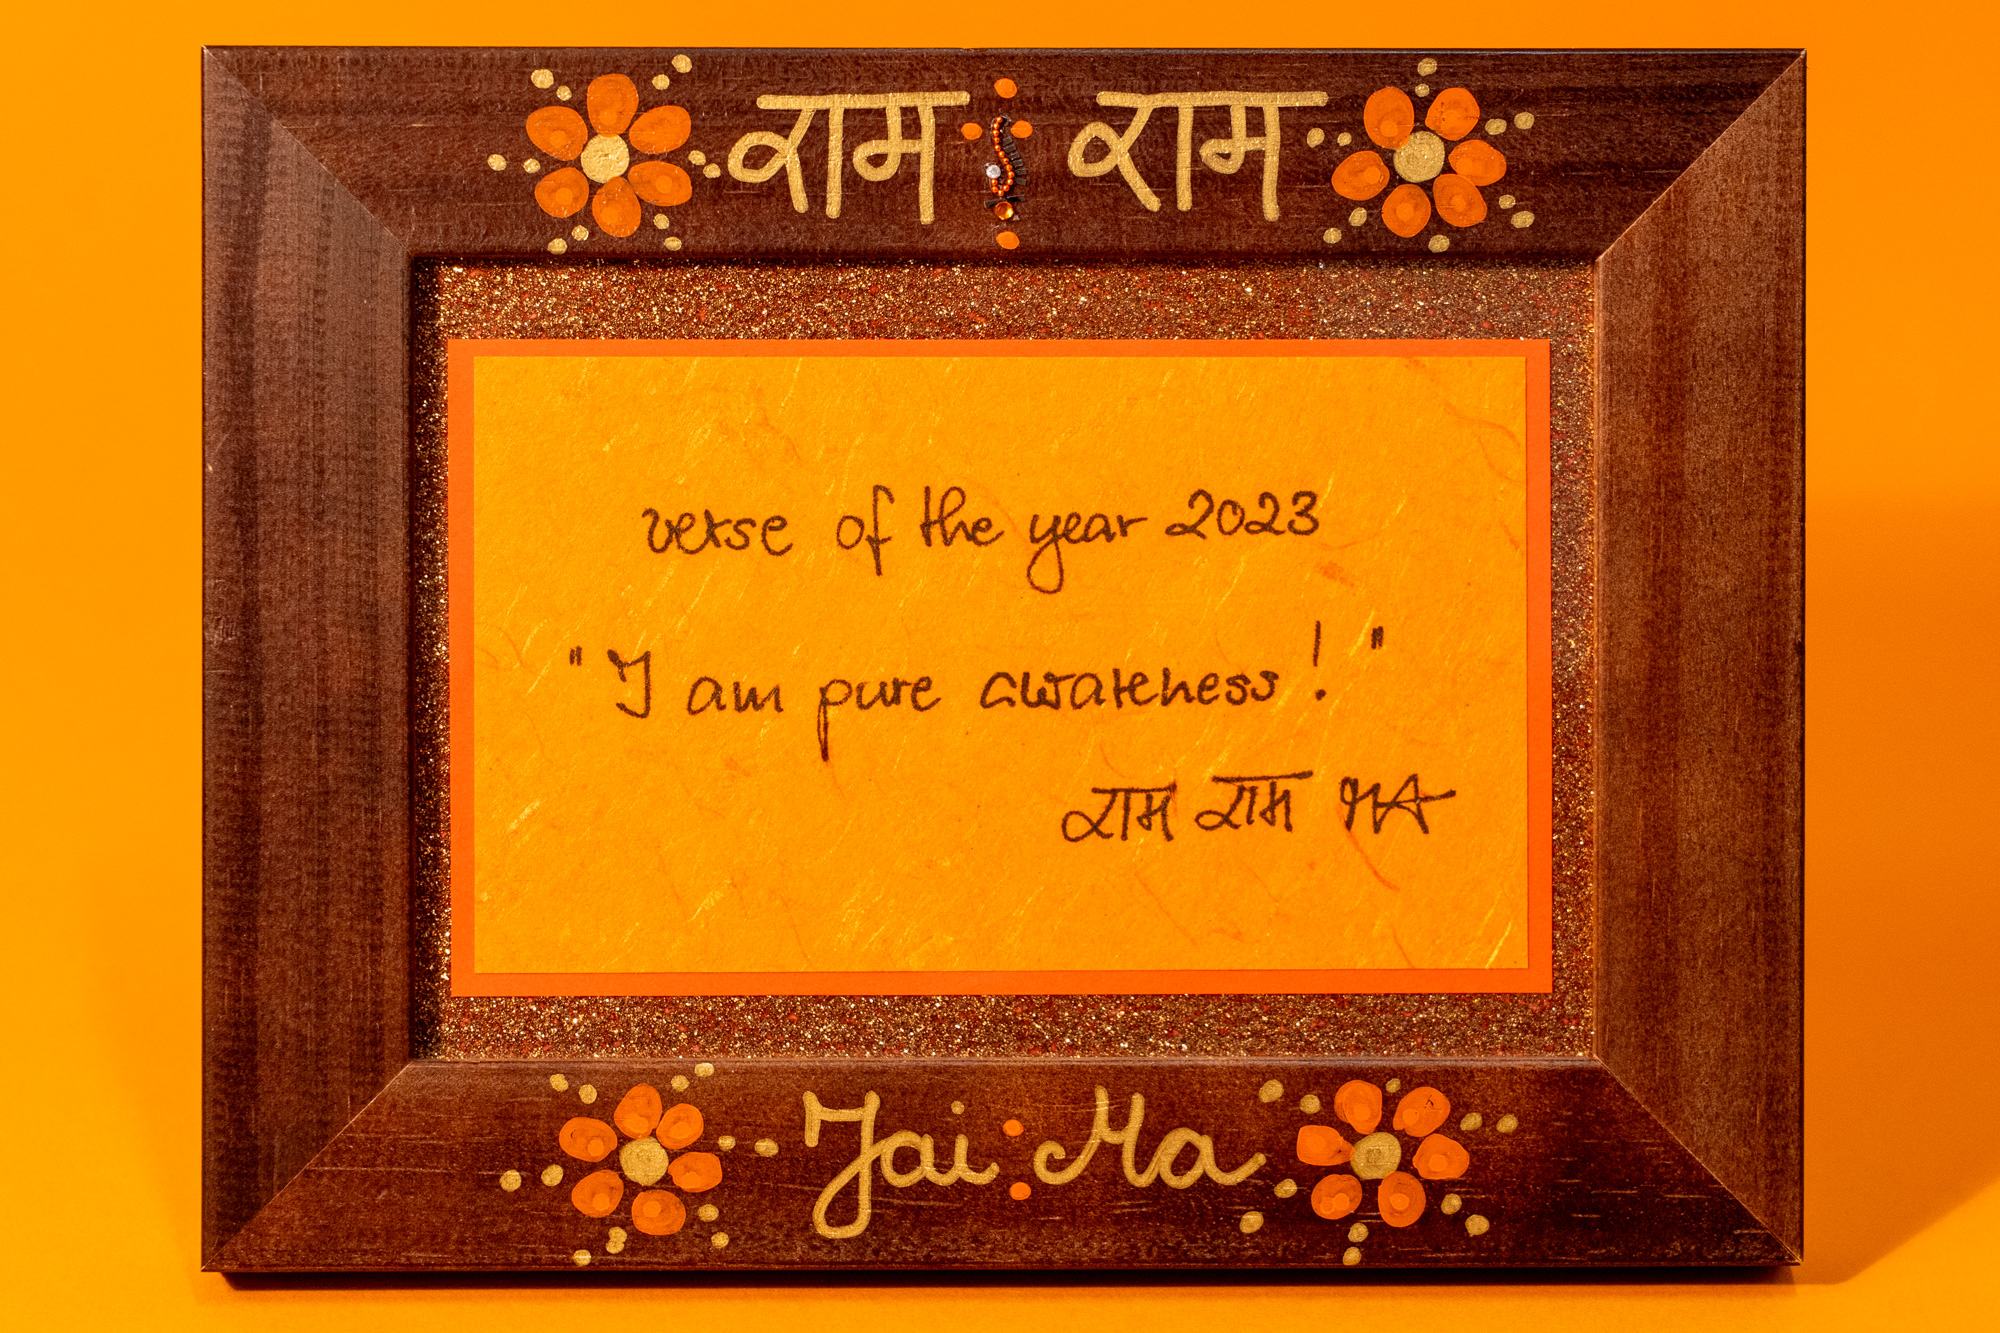 राम राम
verse of the year 2023
"I am pure awareness!"
राम राम MA
Jai Ma